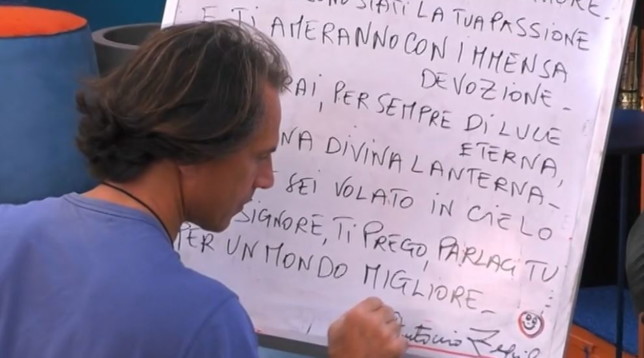 STATI LA TUA PASSIONE
E TI AMERANNO CON IMMENSA
DEVOZIONE -
RAI, PER SEMPRE DI LUCE
ETERNA,
NA DIVINA LANTERNA -
SEI VOLATO IN CIELO
SIGNORE, TI PREGO, PARLACI TU
PER UN MONDO MIGLIORE -